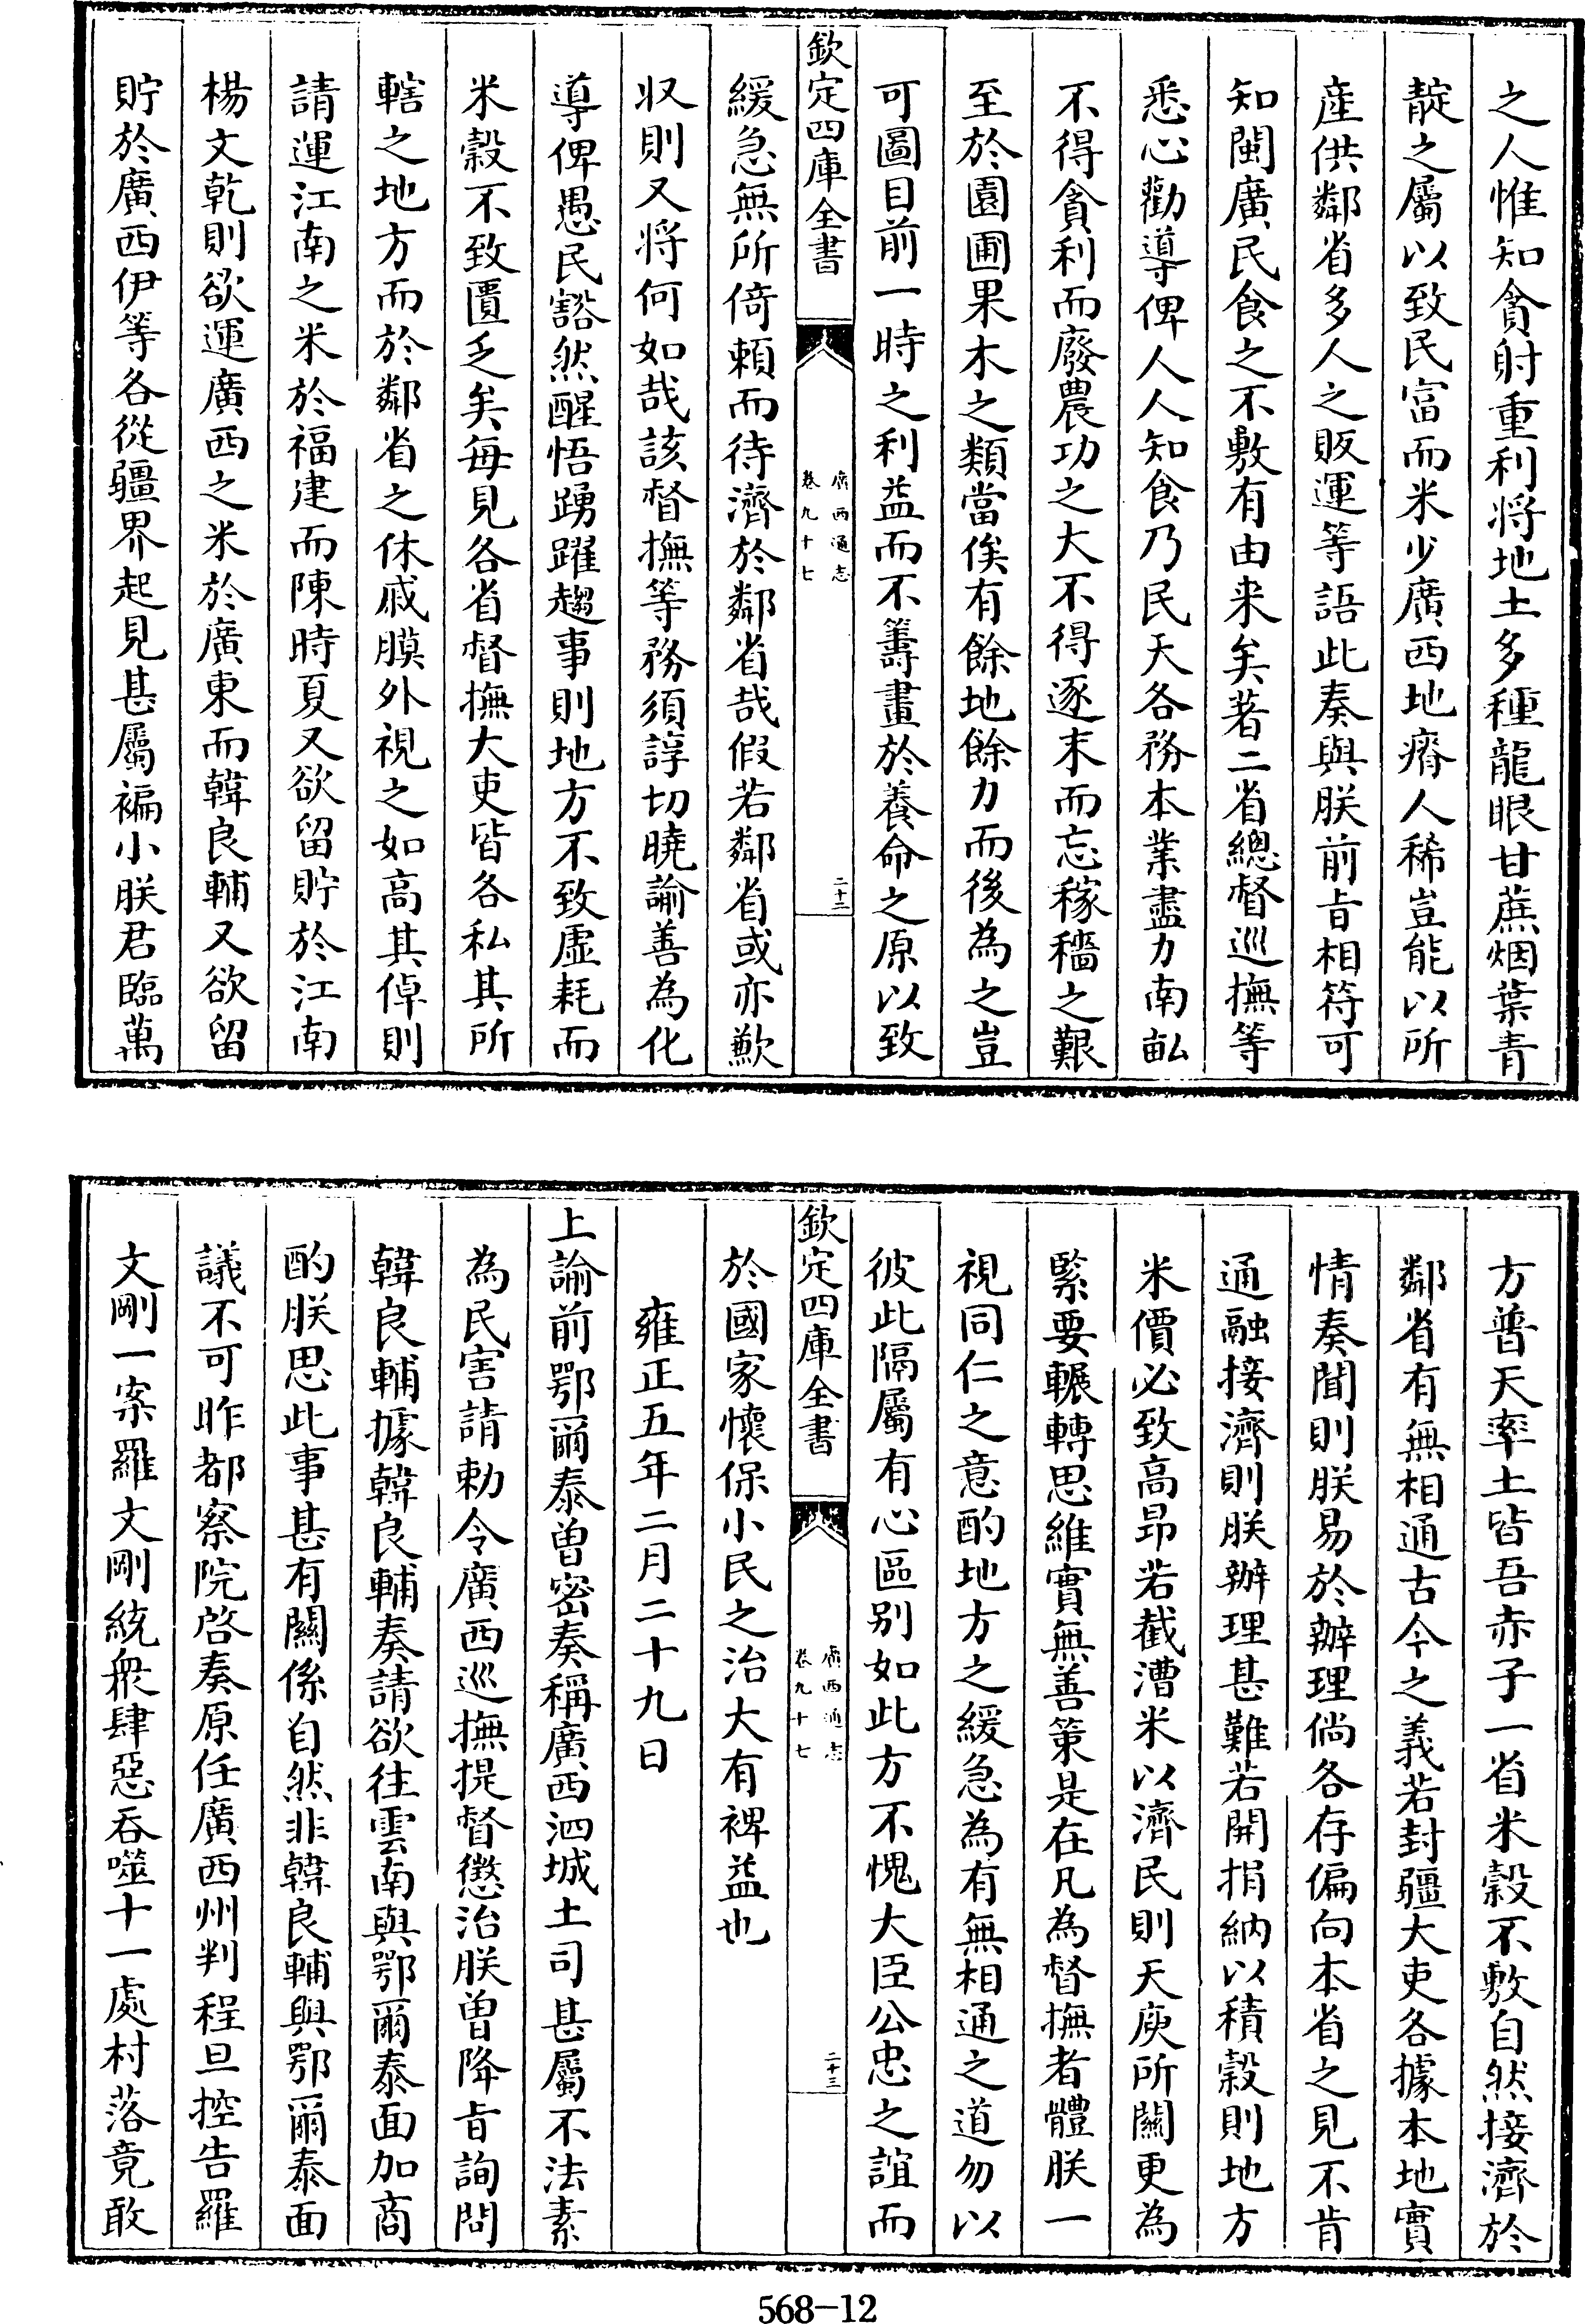 之人惟知貪射重利將地土多種龍眼甘蔗烟葉青
靛之屬以致民富而米少廣西地瘠人稀豈能以所
産供鄰省多人之販運等語此奏與朕前㫖相符可
知閩廣民食之不敷有由来矣著二省總督巡撫等
悉心勸導俾人人知食乃民天各務本業盡力南畝
不得貪利而廢農功之大不得逐末而忘稼穡之艱
至於園圃果木之類當俟有餘地餘力而後為之豈
可圖目前一時之利益而不籌畫於養命之原以致
欽定四庫全書
廣西通志
卷九十七
二十二
緩急無所倚賴而待濟於鄰省哉假若鄰省或亦歉
収則又将何如哉該督撫等務須諄切曉諭善為化
導俾愚民豁然醒悟踴躍趨事則地方不致虛耗而
米穀不致匱乏矣每見各省督撫大吏皆各私其所
轄之地方而於鄰省之休戚膜外視之如高其倬則
請運江南之米於福建而陳時夏又欲留貯於江南
楊文乾則欲運廣西之米於廣東而韓良輔又欲留
貯於廣西伊等各從疆界起見甚屬褊小朕君臨萬
方普天率土皆吾赤子一省米穀不敷自然接濟於
鄰省有無相通古今之義若封疆大吏各據本地實
情奏聞則朕易於辦理倘各存偏向本省之見不肯
通融接濟則朕辦理甚難若開捐納以積穀則地方
米價必致高昂若截漕米以濟民則天庾所關更為
緊要輾轉思維實無善策是在凡為督撫者體朕一
視同仁之意酌地方之緩急為有無相通之道勿以
彼此隔屬有心區别如此方不愧大臣公忠之誼而
欽定四庫全書
廣西通志
卷九十七
二十三
於國家懷保小民之治大有裨益也
雍正五年二月二十九日
上諭前鄂爾泰曾密奏稱廣西泗城土司甚屬不法素
為民害請勅令廣西巡撫提督懲治朕曾降㫖詢問
韓良輔據韓良輔奏請欲往雲南與鄂爾泰面加商
酌朕思此事甚有關係自然非韓良輔與鄂爾泰面
議不可昨都察院啓奏原任廣西州判程旦控告羅
文剛一案羅文剛統衆肆惡吞噬十一處村落竟敢
568-12